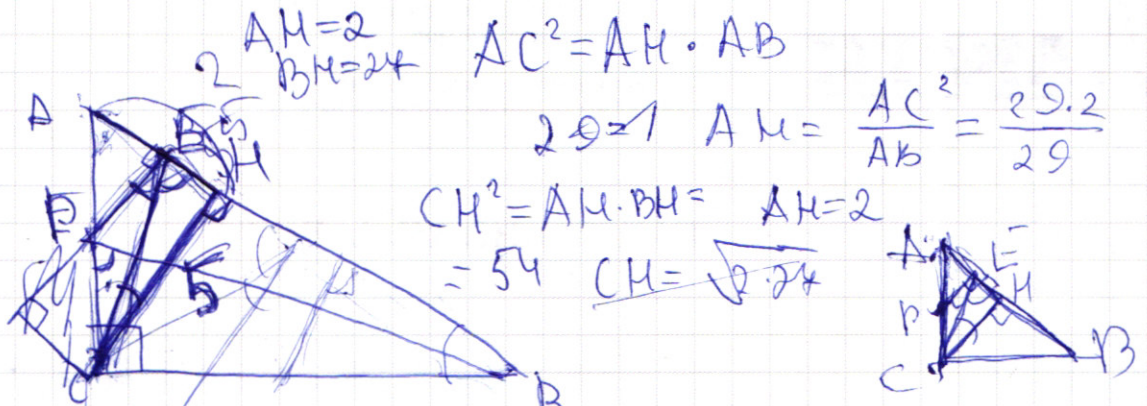 AH=2
BH=27
AC²=AH·AB
AH= AC²/AB = 29·2/29
CH²=AH·BH=
AH=2
=54
CH= √2·27
A
2
5
E
H
P
5
C
B
A
E
H
P
C
B